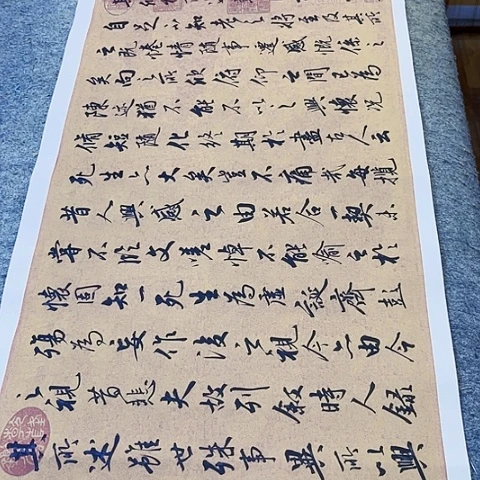 自足不知老之將至及其所
之既惓情隨事遷感慨係之
矣向之所欣俛仰之間已為
陳迹猶不能不以之興懷況
脩短隨化終期於盡古人云
死生亦大矣豈不痛哉每攬
昔人興感之由若合一契未
嘗不臨文嗟悼不能喻之於
懷固知一死生為虛誕齊彭
殤為妄作後之視今亦由今
之視昔悲夫故列敘時人錄
其所述雖世殊事異所以興